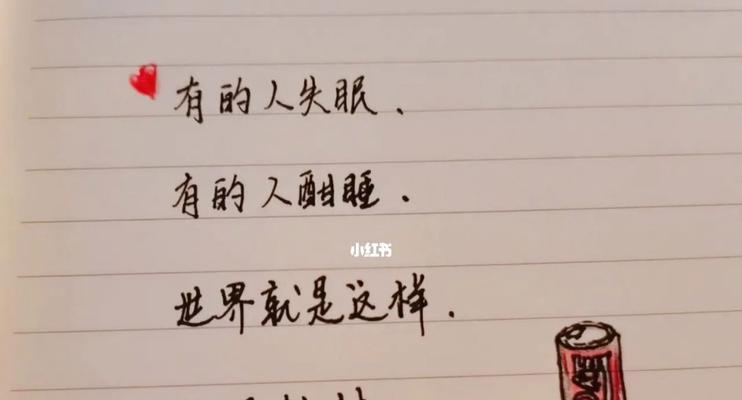 有的人失眠、
有的人酣睡.
小红书
世界就是这样.